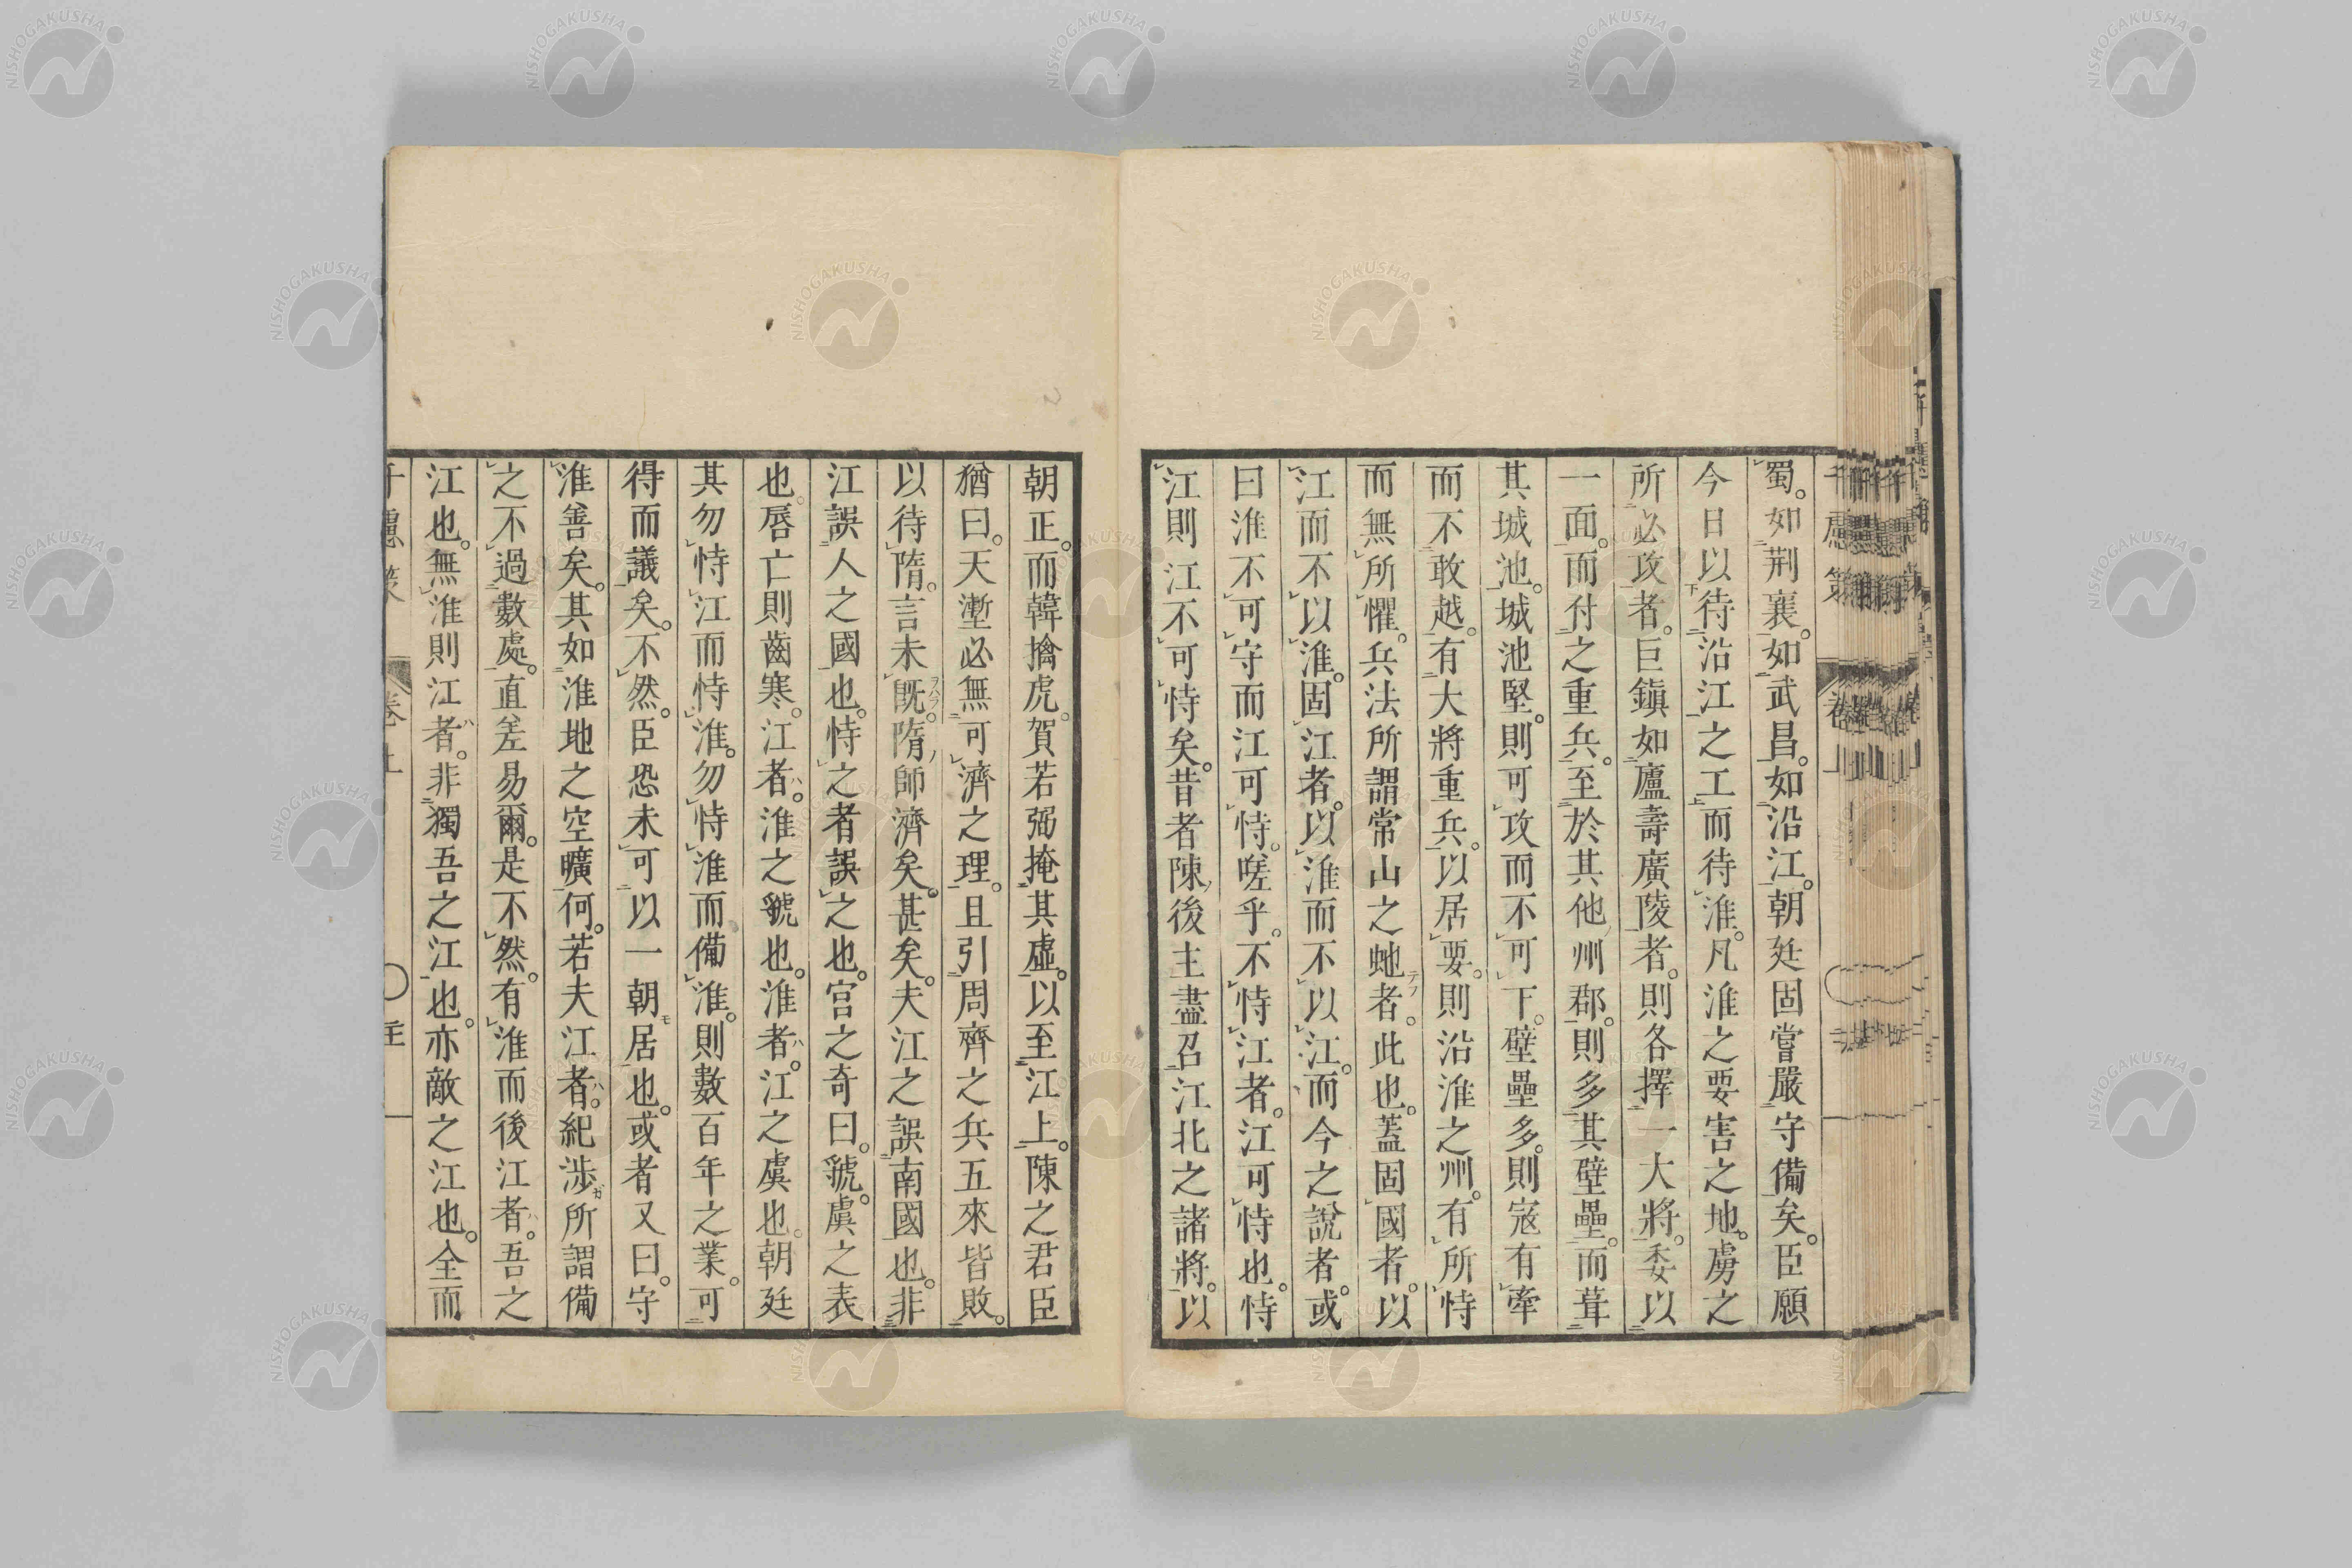 蜀。如荆襄。如武昌。如沿江。朝廷固嘗嚴守備矣。臣願
今日以待沿江之工而待淮。凡淮之要害之地。虜之
所必攻者。巨鎮如廬壽廣陵者。則各擇一大將。委以
一面。而付之重兵。至於其他州郡。則多其壁壘。而葺
其城池。城池堅。則可攻而不可下。壁壘多。則寇有牽
而不敢越。有大將重兵。以居要。則沿淮之州。有所恃
而無所懼。兵法所謂常山之虵者。此也。蓋固國者。以
江而不以淮。固江者。以淮而不以江。而今之說者。或
曰淮不可守而江可恃。嗟乎。不恃江者。江可恃也。恃
江則江不可恃矣。昔者陳後主盡召江北之諸將。以
朝正。而韓擒虎。賀若弼掩其虛。以至江上。陳之君臣
猶曰。天塹必無可濟之理。且引周齊之兵五來皆敗。
以待隋。言未既。隋師濟矣。甚矣。夫江之誤南國也。非
江誤人之國也。恃之者誤之也。宮之奇曰。虢。虞之表
也。唇亡則齒寒。江者。淮之虢也。淮者。江之虞也。朝廷
其勿恃江而恃淮。勿恃淮而備淮。則數百年之業。可
得而議矣。不然。臣恐未可以一朝居也。或者又曰。守
淮善矣。其如淮地之空曠何。若夫江者。紀渉所謂備
之不過數處。直差易爾。是不然。有淮而後江者。吾之
江也。無淮則江者。非獨吾之江也。亦敵之江也。全而
千慮策 卷上
NISHOGAKUSHA